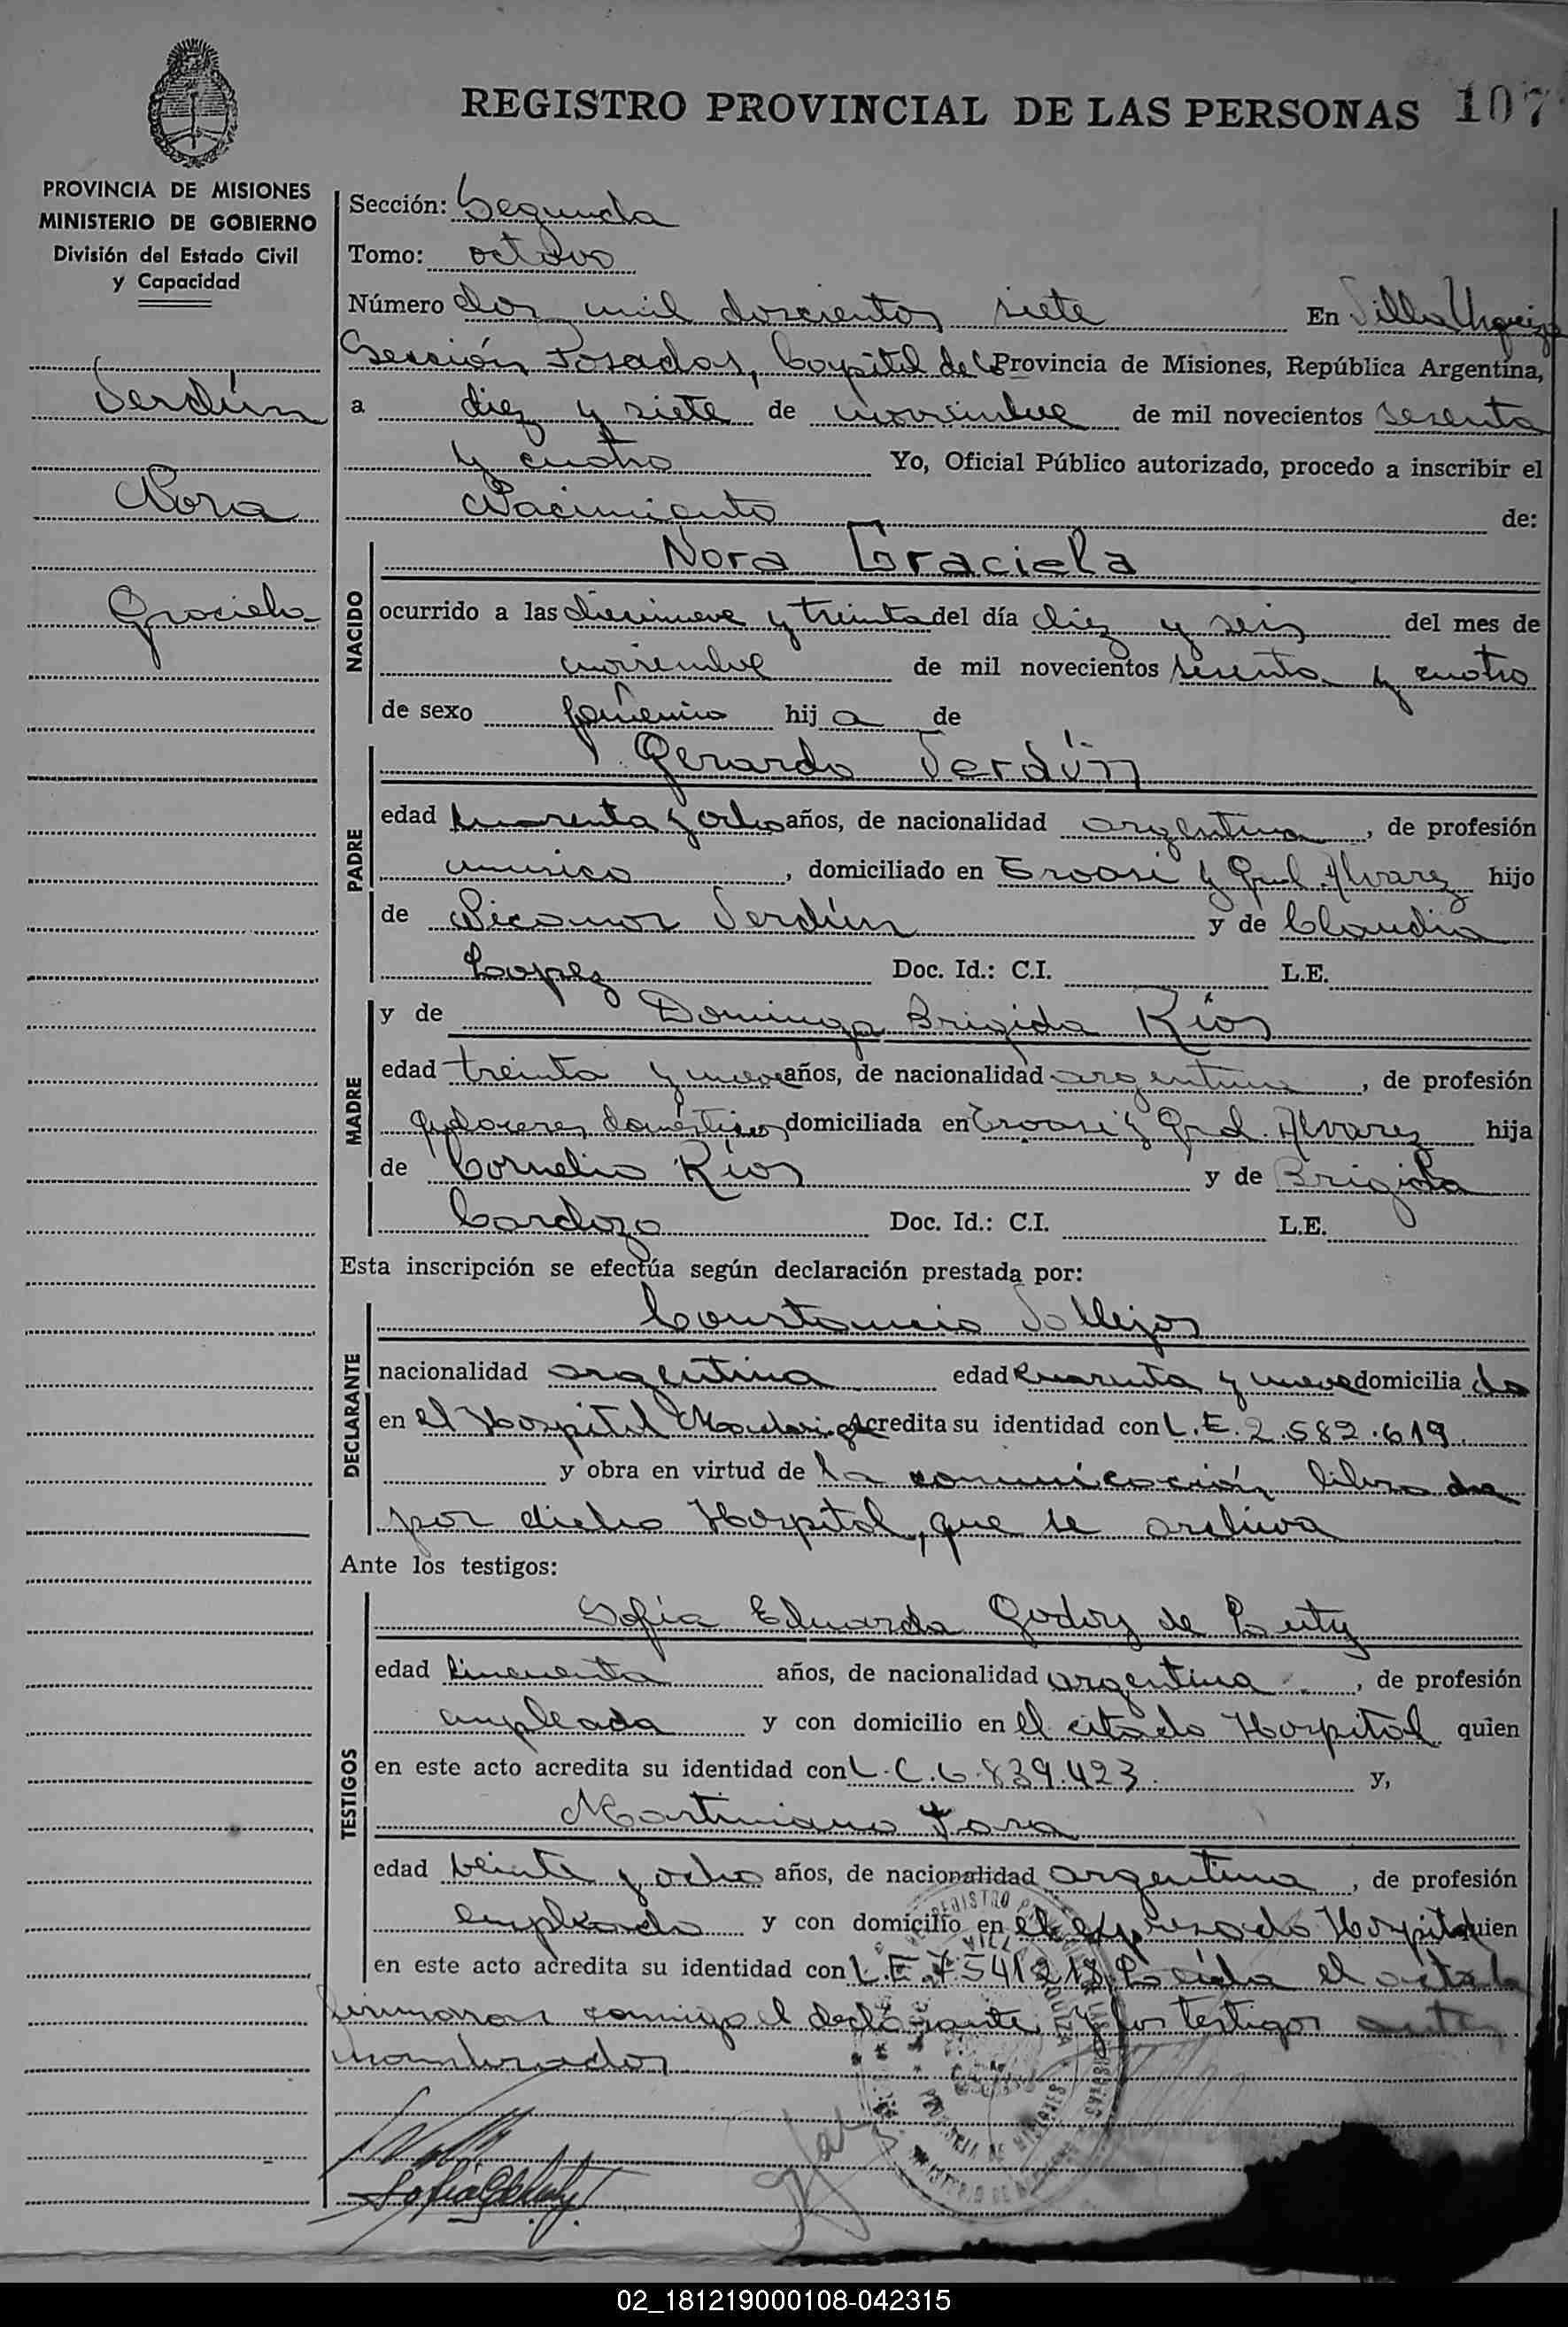 REGISTRO PROVINCIAL DE LAS PERSONAS 107
PROVINCIA DE MISIONES
MINISTERIO DE GOBIERNO
División del Estado Civil
y Capacidad
Verdún
Nora
Graciela
Sección: Segunda
Tomo: octavo
Número dos mil doscientos siete En Villa Urquiza
Sección Posadas, Capital de la Provincia de Misiones, República Argentina,
a diez y siete de noviembre de mil novecientos sesenta
y cuatro Yo, Oficial Público autorizado, procedo a inscribir el
Nacimiento de:
NACIDO
Nora Graciela
ocurrido a las diecinueve y treinta del día diez y seis del mes de
noviembre de mil novecientos sesenta y cuatro
de sexo femenino hija de
PADRE
Gerardo Verdún
edad cuarenta y ocho años, de nacionalidad argentina, de profesión
musico, domiciliado en y Gral. Alvarez hijo
de Nicanor Verdún y de Claudia
Lopez Doc. Id.: C.I. L.E.
MADRE
y de Dominga Brigida Ríos
edad treinta y nueve años, de nacionalidad argentina, de profesión
quehaceres domésticos domiciliada en y Gral. Alvarez hija
de Cornelio Ríos y de Brigida
Cardozo Doc. Id.: C.I. L.E.
Esta inscripción se efectúa según declaración prestada por:
DECLARANTE
Constancio Vallejos
nacionalidad argentina edad cuarenta y nueve domicilia do
en el Hospital Madariaga Acredita su identidad con L.E. 2.582.619
y obra en virtud de la comunicación librada
por dicho Hospital, que se archiva
Ante los testigos:
TESTIGOS
Sofía Eduarda Godoy de
edad cincuenta años, de nacionalidad argentina, de profesión
empleada y con domicilio en el citado Hospital quien
en este acto acredita su identidad con L.C. 6.839.423 y,
Martiniano
edad veinte y ocho años, de nacionalidad argentina, de profesión
empleado y con domicilio en el expresado Hospital quien
en este acto acredita su identidad con L.E. 7541218 Leída el acta la
firmaron conmigo el declarante y los testigos antes
nombrados
02_181219000108-042315